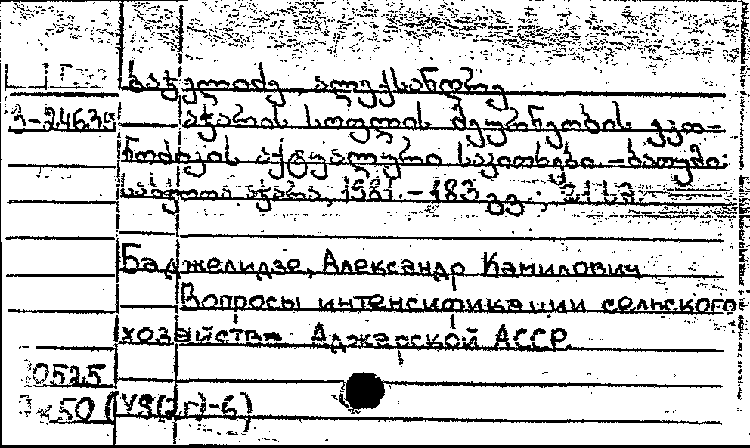 ბაჯელიძე, ალექსანდრე
3-24635 აჭარის სოფლის მეურნეობის ეკო-
ნომიკის აქტუალური საკითხები. -ბათუმი:
საბჭოთა აჭარა, 1981. - 183 გვ.; 21 სმ.
Баджелидзе, Александр Камилович
Вопросы интенсификации сельского
хозяйства Аджарской АССР.
0525
50 (У9(2г)-6)